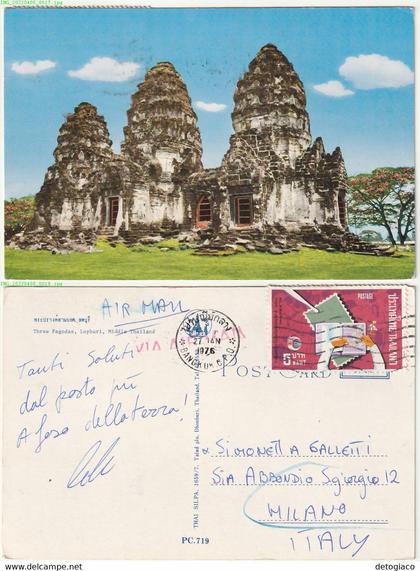 IMG_20220405_0017.jpg
IMG_20220405_0018.jpg
พระปรางค์สามยอด ลพบุรี
Three Pagodas, Lopburi, Middle Thailand
AIR MAIL
VIA AIR MAIL
Tanti Saluti
dal posto più
afoso della terra!
BANGKOK G.P.O.
27 JAN
1976
POSTAGE
ประเทศไทย THAILAND
5 บาท
BAHT
POST CARD
SIMONETTA GALLETTI
VIA ABBONDIO SGIORGIO 12
MILANO
ITALY
PC.719
www.delcampe.net
detogiaco